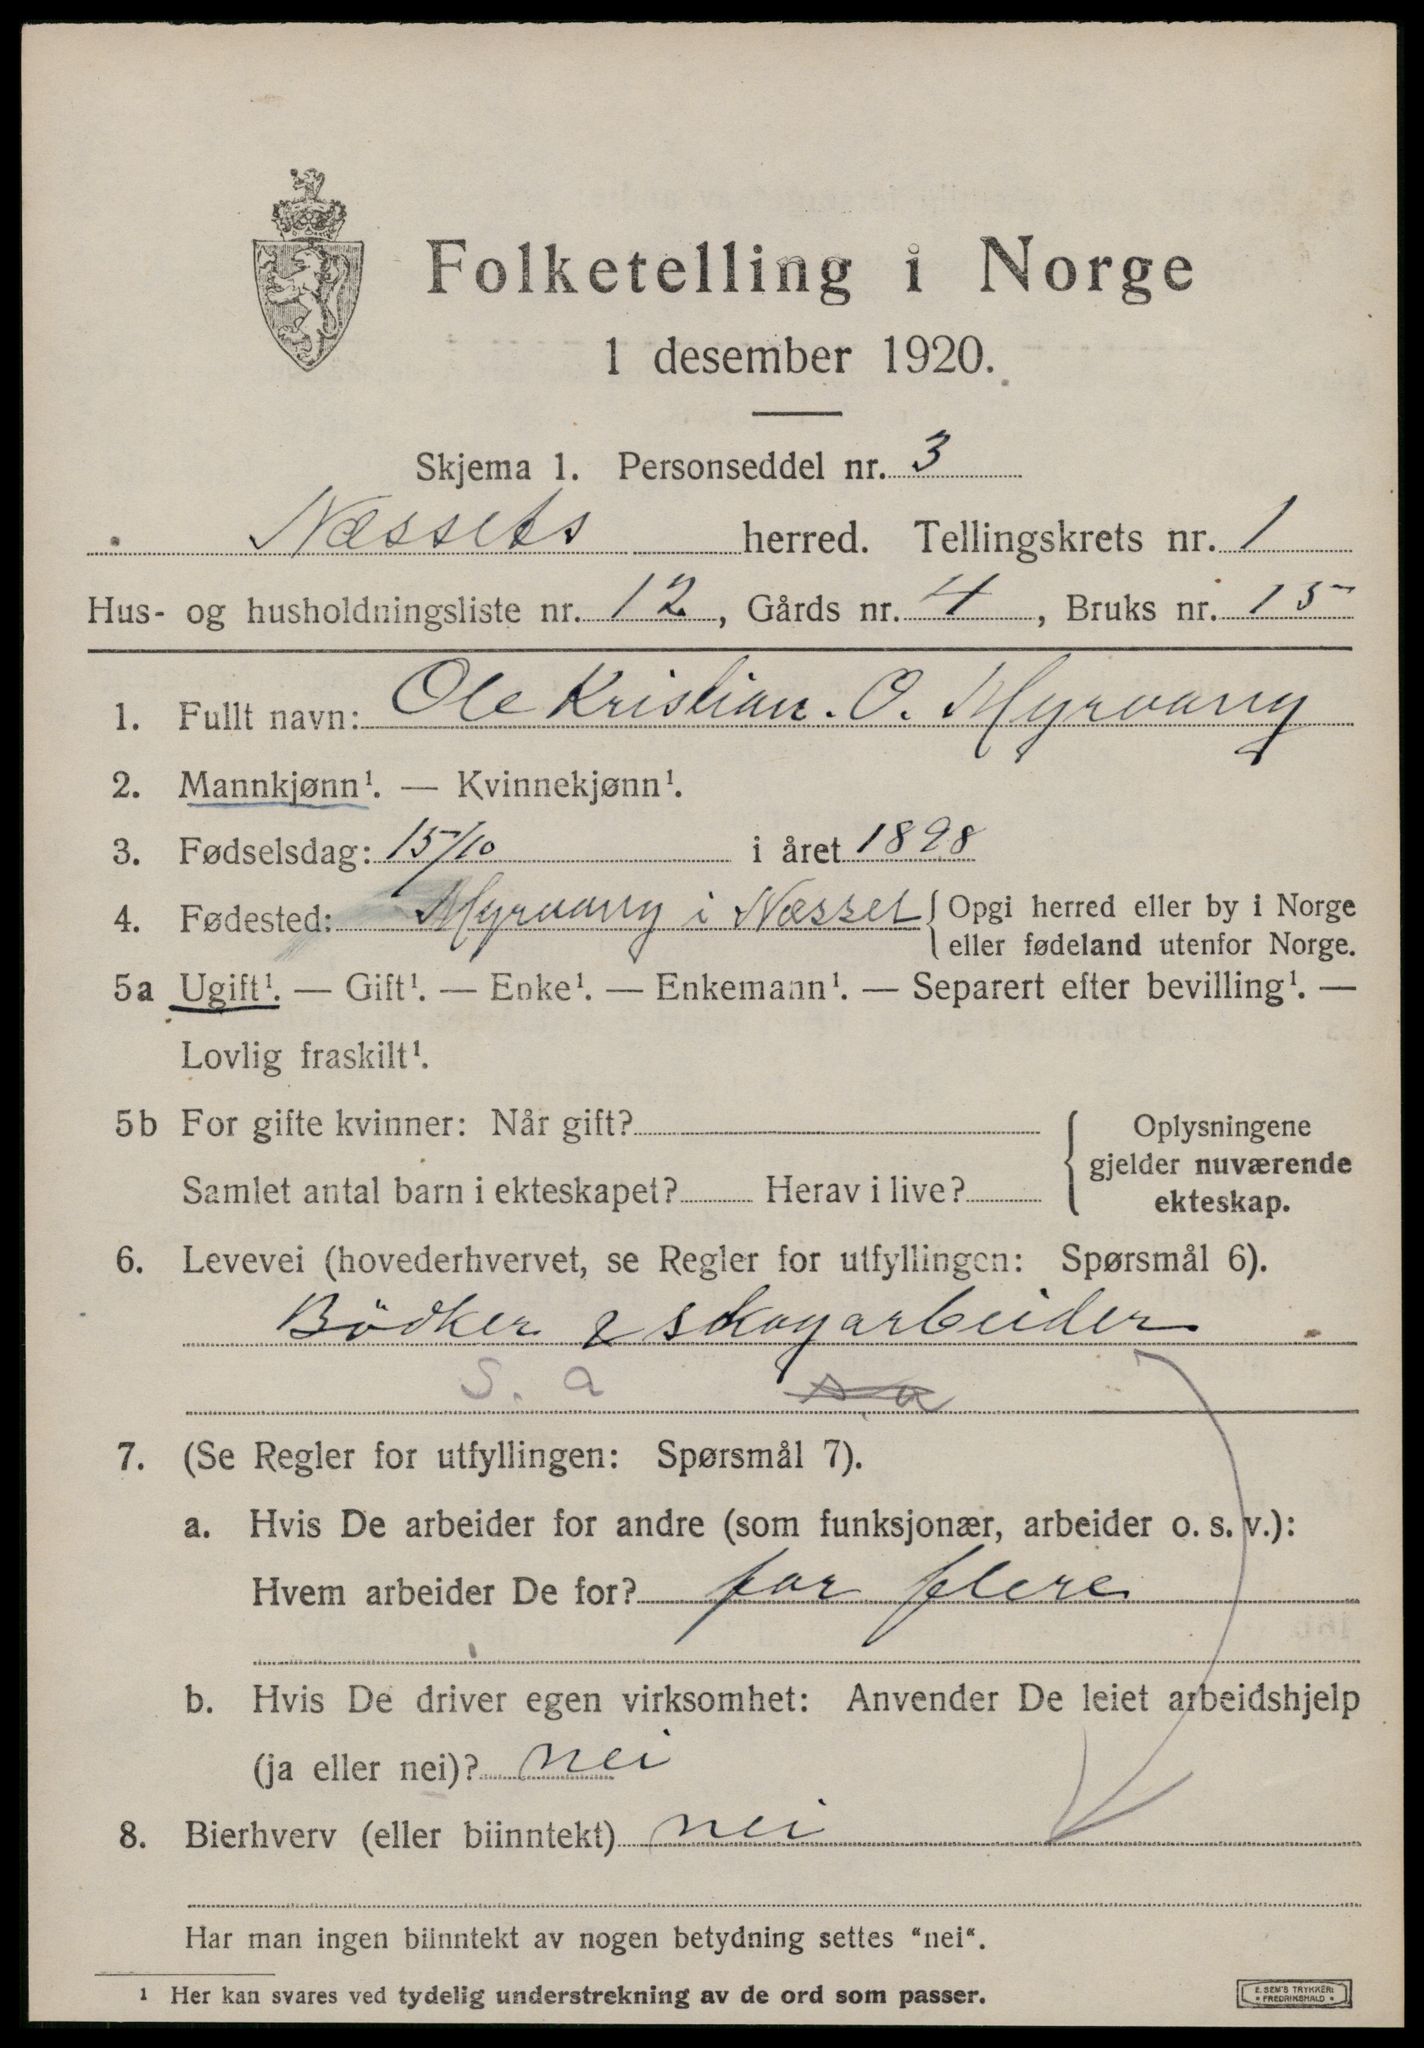 Folketelling i Norge
1 desember 1920.
Skjema 1. Personseddel nr. 3
Næssets herred. Tellingskrets nr. 1
Hus- og husholdningsliste nr. 12, Gårds nr. 4, Bruks nr. 15
1. Fullt navn: Ole Kristian. O. Myrvang
2. Mannkjønn¹. — Kvinnekjønn¹.
3. Fødselsdag: 15/10 i året 1898
4. Fødested: Myrvang i Næsset { Opgi herred eller by i Norge
eller fødeland utenfor Norge.
5a Ugift¹. — Gift¹. — Enke¹. — Enkemann¹. — Separert efter bevilling¹. —
Lovlig fraskilt¹.
5b For gifte kvinner: Når gift? { Oplysningene
gjelder nuværende
Samlet antal barn i ekteskapet? Herav i live? ekteskap.
6. Levevei (hovederhvervet, se Regler for utfyllingen: Spørsmål 6).
Bödker & skogarbeider
S. a s.a
7. (Se Regler for utfyllingen: Spørsmål 7).
a. Hvis De arbeider for andre (som funksjonær, arbeider o. s. v.):
Hvem arbeider De for? for flere
b. Hvis De driver egen virksomhet: Anvender De leiet arbeidshjelp
(ja eller nei)? nei
8. Bierhverv (eller biinntekt) nei
Har man ingen biinntekt av nogen betydning settes "nei“.
¹ Her kan svares ved tydelig understrekning av de ord som passer.
E. SEM'S TRYKKERI
* FREDRIKSHALD *